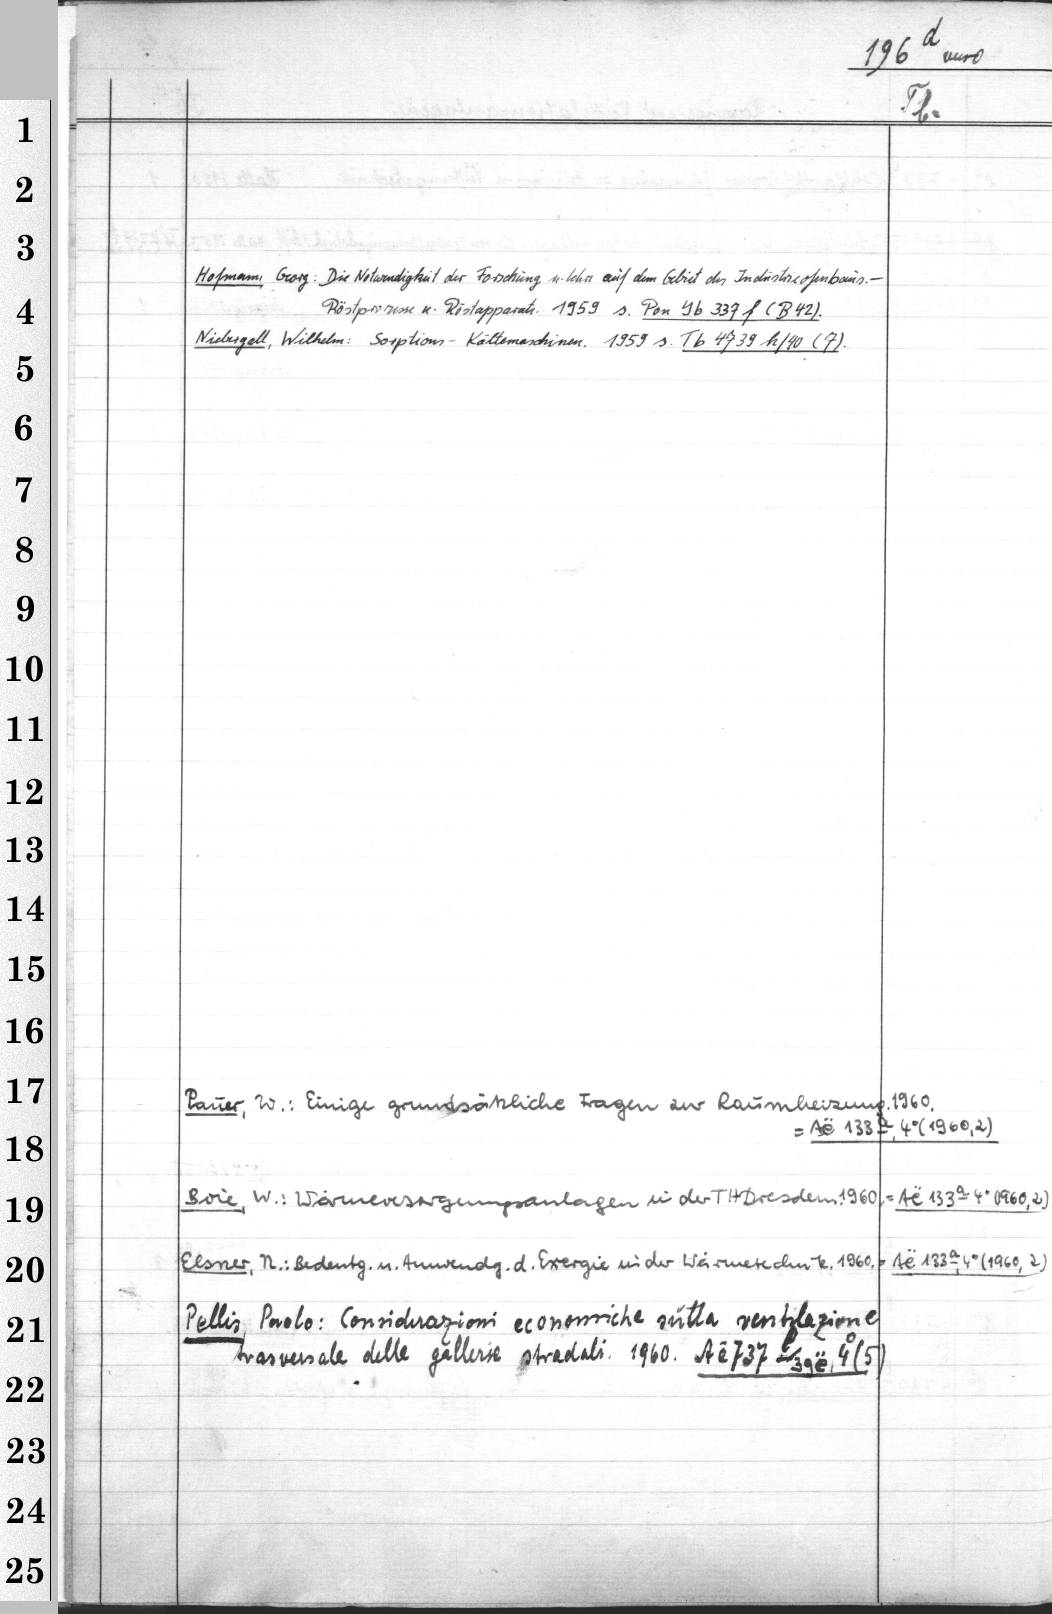 196 d
vero
Tb.
1
2
3
Hofmann, Georg: Die Notwendigkeit der Forschung u. Lehre auf dem Gebiet des Industrieofenbaus.—
4
Röstprozesse u. Röstapparate. 1959 s. Pon Yb 337 f (B 42).
Niebergall, Wilhelm: Sorptions-Kältemaschinen. 1959 s. Tb 4739 h/40 (7).
5
6
7
8
9
10
11
12
13
14
15
16
17
Pauer, W.: Einige grundsätzliche Fragen zur Raumheizung. 1960.
= Aë 133 a, 4° (1960,2)
18
Boie, W.: Wärmeversorgungsanlagen in der TH Dresden. 1960. = Aë 133 a 4° (1960,2)
19
Elsner, N.: Bedeutg. u. Anwendg. d. Exergie in der Wärmetechnik. 1960. = Aë 133 a, 4° (1960, 2)
20
Pellis, Paolo: Considerazioni economiche sulla ventilazione
21
trasversale delle gallerie stradali. 1960. Aë 737 /39ë, 4° (5)
22
23
24
25